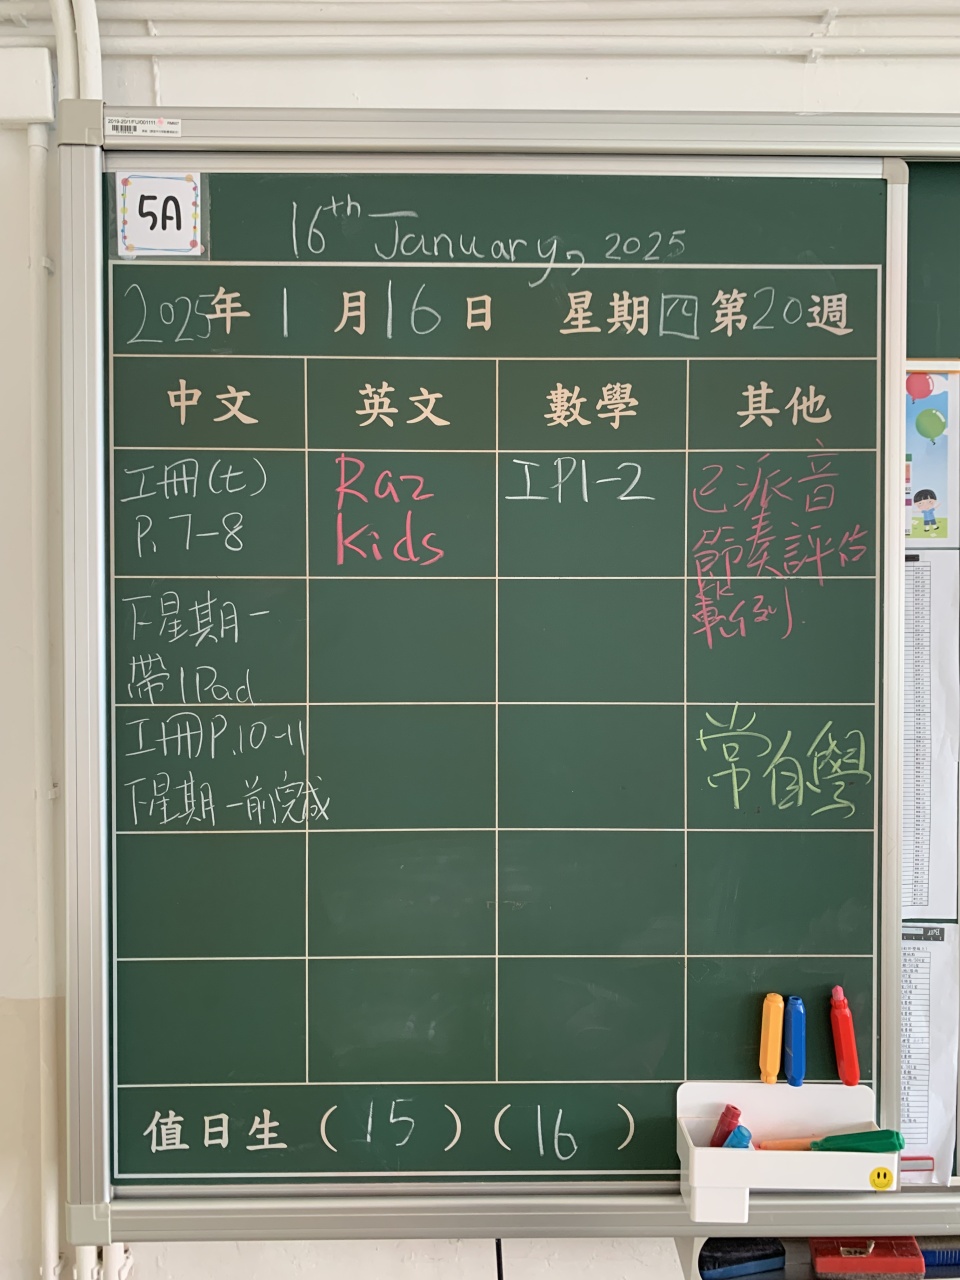 2019-20/1/FU/001111
5A
16th January, 2025
2025年1月16日 星期四第20週
中文 英文 數學 其他
工冊(七)
P.7-8
Raz
Kids
工P1-2
已派音
節奏評估
範例
下星期一
帶IPad
工冊P.10-11
下星期一前完成
常自學
值日生(15)(16)